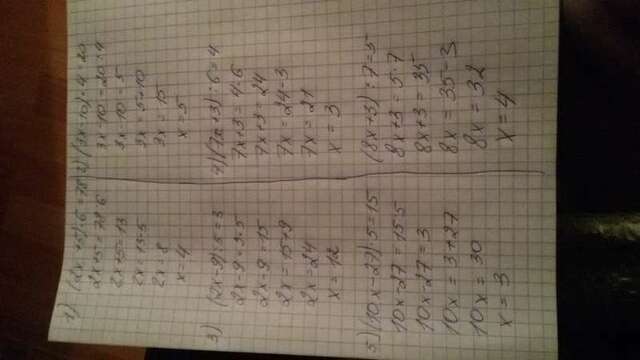 1) (2x+5)·6=78
2x+5=78:6
2x+5=13
2x=13-5
2x=8
x=4
2) (3x-10)·4=20
3x-10=20:4
3x-10=5
3x=5+10
3x=15
x=5
3) (2x-9):5=3
2x-9=3·5
2x-9=15
2x=15+9
2x=24
x=12
4) (7x+3):6=4
7x+3=4·6
7x+3=24
7x=24-3
7x=21
x=3
5) (10x-27)·5=15
10x-27=15:5
10x-27=3
10x=3+27
10x=30
x=3
(8x+3):7=5
8x+3=5·7
8x+3=35
8x=35-3
8x=32
x=4